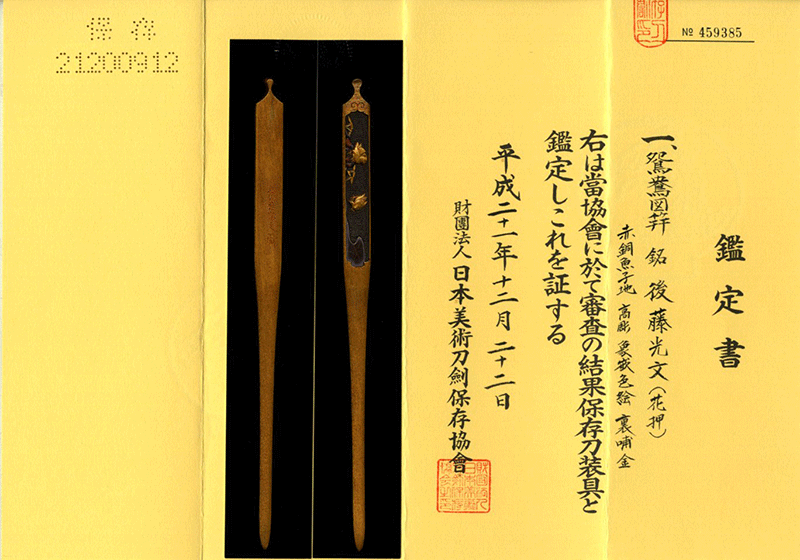 保存
21200912
№ 459385
鑑定書
一、鴛鴦図笄 銘 後藤光文(花押)
赤銅魚子地 高彫 象嵌色絵 裏哺金
右は當協會に於て審査の結果保存刀装具と
鑑定しこれを証する
平成二十一年十二月二十二日
財團法人 日本美術刀劍保存協會